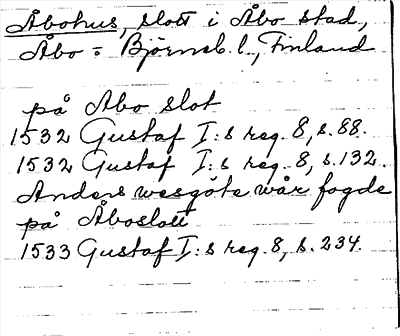 Åbohus, slott i Åbo stad,
Åbo = Björneb. l., Finland
på Abo slot
1532 Gustaf I:s reg. 8, s. 88.
1532 Gustaf I:s reg. 8, s. 132.
Anders wesgöte wår fogde
på Åboslott
1533 Gustaf I:s reg. 8, s. 234.